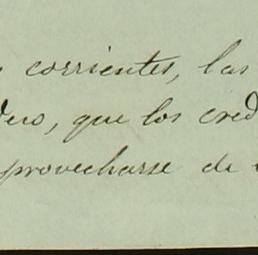 corrientes, las
que los cred
provecharse de